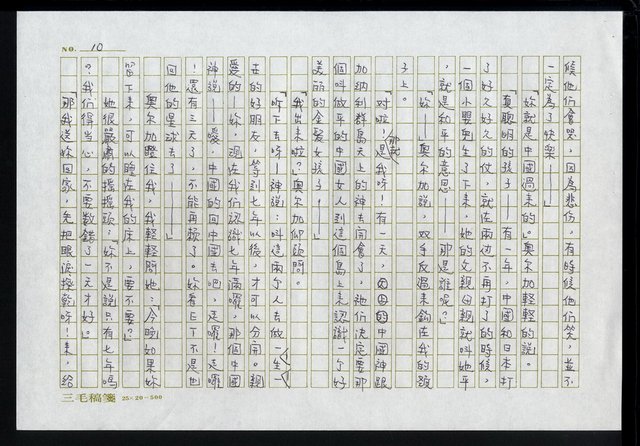 NO. 10
候他們會哭，因為悲傷，有時候他們笑，並不
一定為了快樂——」
「妳就是中國過來的。」奧尔加輕輕的說。
「真聰明的孩子——有一年，中國和日本打
了好久好久的仗，就在兩边不再打了的時候，
一個小嬰兒生了下來，她的父親母親就叫她平
，就是和平的意思——那是誰呢？」
「妳——」奧尔加說，双手反過來鈎在我的頸
子上。
「对啦！是我呀！有一天，那就 中國神跟
加納利群島天上的神去開會了，祂們決定要那
個叫做平的中國女人到這個島上來認識一个好
美麗的金髮女孩子！——」
「我出來啦？」奧尔加仰頭問。
「听下去呀——神說：叫這兩个人去做一生一
世的好朋友，等到七年以後，才可以分開。親
愛的——妳，過在我們認識七年滿囉，那個中國
神說——愛，中國的回中國去吧，走囉！走囉
！還有三天了，不能再賴了。妳看E.T.不是也
回他的星球去了——」
奧尔加瞪住我，我輕輕問她：「今晚如果妳
留下來，可以睡在我的床上，要不要？」
她很嚴肅的搖搖頭：「妳不是說只有七年嗎
？我們得當心，不要数錯了一天才好。」
「那我送妳回家，先把眼淚擦乾呀！來，給
三毛稿箋 25×20=500